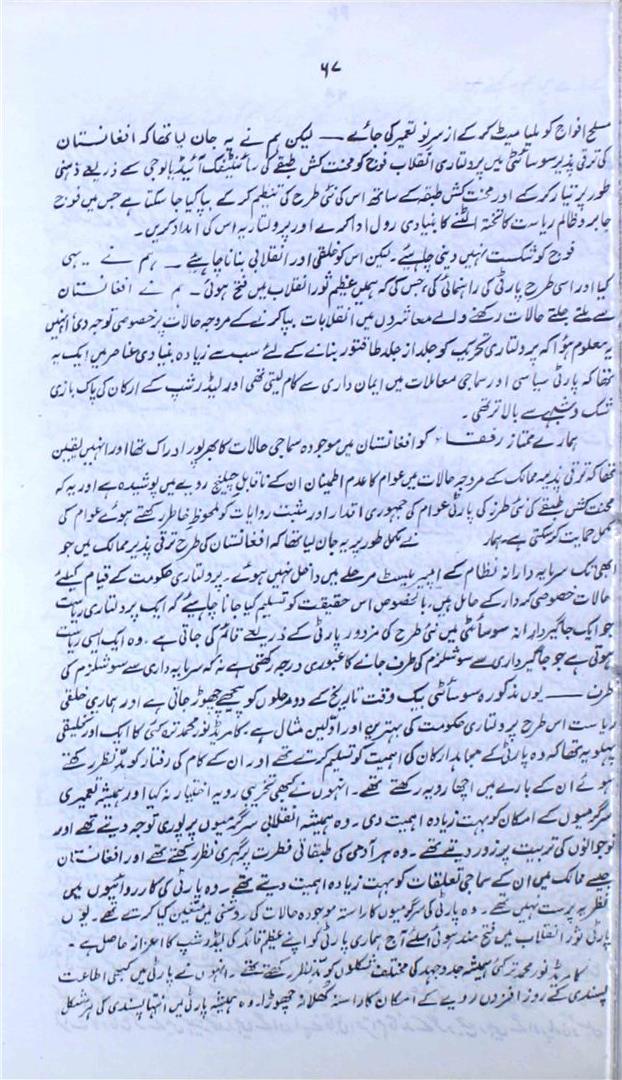 ۶۷
مسلح افواج کو ملیا میٹ کر کے از سر نو تعمیر کی جائے — لیکن ہم نے یہ جان لیا تھا کہ افغانستان
کی ترقی پذیر سوسائٹی میں پرولتاری انقلاب فوج کو محنت کش طبقے کی سائنٹیفک آئیڈیالوجی کے ذریعے ذہنی
طور پر تیار کر کے اور محنت کش طبقہ کے ساتھ اس کی نئی طرح کی تنظیم کر کے بپا کیا جا سکتا ہے جس میں فوج
جابر و ظالم ریاست کا تختہ الٹنے کا بنیادی رول ادا کرے اور پرولتاریہ اس کی امداد کریں۔
فوج کو شکست نہیں دینی چاہیے۔ لیکن اس کو خلقی اور انقلابی بنانا چاہیئے — ہم نے یہی
کیا اور اسی طرح پارٹی کی راہنمائی کی، جس کی کہ ہمیں عظیم ثور انقلاب میں فتح ہوئی۔ ہم نے افغانستان
سے ملتے جلتے حالات رکھنے والے معاشروں میں انقلابات بپا کرنے کے مروجہ حالات پر خصوصی توجہ دی، انہیں
یہ معلوم ہوا کہ پرولتاری تحریک کو جلد از جلد طاقتور بنانے کے لئے سب سے زیادہ بنیادی عناصر میں ایک یہ
تھا کہ پارٹی سیاسی اور سماجی معاملات میں ایمان داری سے کام لیتی تھی اور لیڈر شپ کے ارکان کی پاک بازی
شک و شبہے سے بالاتر تھی۔
ہمارے ممتاز رفقاء کو افغانستان میں موجودہ سماجی حالات کا بھرپور ادراک تھا اور انہیں یقین
تھا کہ ترقی پذیر ممالک کے مروجہ حالات میں عوام کا عدم اطمینان ان کے ناقابل چیلنج رویے میں پوشیدہ ہے اور یہ کہ
محنت کش طبقے کی نئی طرز کی پارٹی عوام کی جمہوری اقدار اور مثبت روایات کو ملحوظ خاطر رکھتے ہوئے عوام کی
مکمل حمایت کر سکتی ہے، ہمار نے مکمل طور پر یہ جان لیا تھا کہ افغانستان کی طرح ترقی پذیر ممالک میں جو
ابھی تک سرمایہ دارانہ نظام کے امپیریلسٹ مرحلے میں داخل نہیں ہوئے۔ پرولتاری حکومت کے قیام کیلئے
حالات خصوصی کردار کے حامل ہیں، بالخصوص اس حقیقت کو تسلیم کیا جانا چاہیئے کہ ایک پرولتاری ریاست
جو ایک جاگیردارانہ سوسائٹی میں نئی طرح کی مزدور پارٹی کے ذریعے قائم کی جاتی ہے۔ وہ ایک ایسی ریاست
ہوتی ہے جو جاگیرداری سے سوشلزم کی طرف جانے کا عبوری درجہ رکھتی ہے نہ کہ سرمایہ داری سے سوشلزم کی
طرف — یوں مذکورہ سوسائٹی بیک وقت تاریخ کے دو مرحلوں کو پیچھے چھوڑ جاتی ہے اور ہماری خلقی
ریاست اس طرح پرولتاری حکومت کی بہترین اور اولین مثال ہے، کامریڈ نور محمد ترہ کئی کا ایک اور تخلیقی
پہلو یہ تھا کہ وہ پارٹی کے مجاہد ارکان کی اہمیت کو تسلیم کرتے تھے اور ان کے کام کی رفتار کو مدِّ نظر رکھتے
ہوئے ان کے بارے میں اچھا رویہ رکھتے تھے۔ انہوں نے کبھی تخریبی رویہ اختیار نہ کیا اور ہمیشہ تعمیری
سرگرمیوں کے امکان کو بہت زیادہ اہمیت دی۔ وہ ہمیشہ انقلابی سرگرمیوں پر پوری توجہ دیتے تھے اور
نوجوانوں کی تربیت پر زور دیتے تھے۔ وہ ہر آدمی کی طبقاتی فطرت پر گہری نظر رکھتے تھے اور افغانستان
جیسے ممالک میں ان کے سماجی تعلقات کو بہت زیادہ اہمیت دیتے تھے۔ وہ پارٹی کی کارروائیوں میں
نظریہ پرست نہیں تھے۔ وہ پارٹی کی سرگرمیوں کا راستہ موجودہ حالات کی روشنی میں متعین کیا کرتے تھے۔ یوں
پارٹی ثور انقلاب میں فتح مند ہوئی اسلئے آج ہماری پارٹی کو اپنے عظیم قائد کی لیڈر شپ کا اعزاز حاصل ہے۔
کامریڈ نور محمد ترہ کئی ہمیشہ جدوجہد کی مختلف شکلوں کو مدِّ نظر رکھتے تھے۔ انہوں نے پارٹی میں کبھی اطاعت
پسندی کے روز افزوں رویے کے امکان کا راستہ کھلا نہ چھوڑا۔ وہ ہمیشہ پارٹی میں انتہا پسندی کی ہر شکل